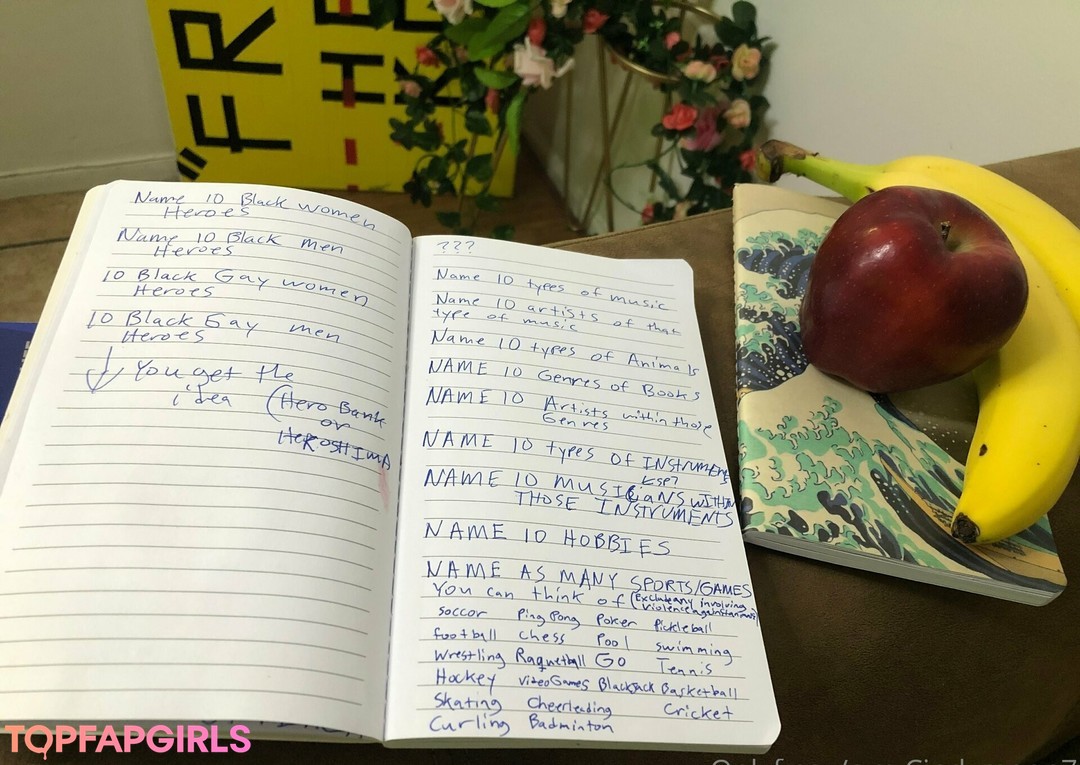 "FR
THE
Name 10 Black women
Heroes
Name 10 Black men
Heroes
10 Black Gay women
Heroes
10 Black Gay men
Heroes
You get the
idea
(Hero Bank
or
HEROSHIMA
???
Name 10 types of music
Name 10 artists of that
type of music
Name 10 types of Animals
NAME 10 Genres of Books
NAME 10 Artists within those
Genres
NAME 10 types of INSTRUMENTS
<sp?
NAME 10 MUSICIANS WITHIN
THOSE INSTRUMENTS
NAME 10 HOBBIES
NAME AS MANY SPORTS/GAMES
You can think of (Exclude any involving
violence against animals)
soccor Ping Pong Poker Pickleball
football chess Pool swimming
Wrestling Raquetball GO Tennis
Hockey VideoGames Blackjack Basketball
Skating Cheerleading Cricket
Curling Badminton
TOPFAPGIRLS